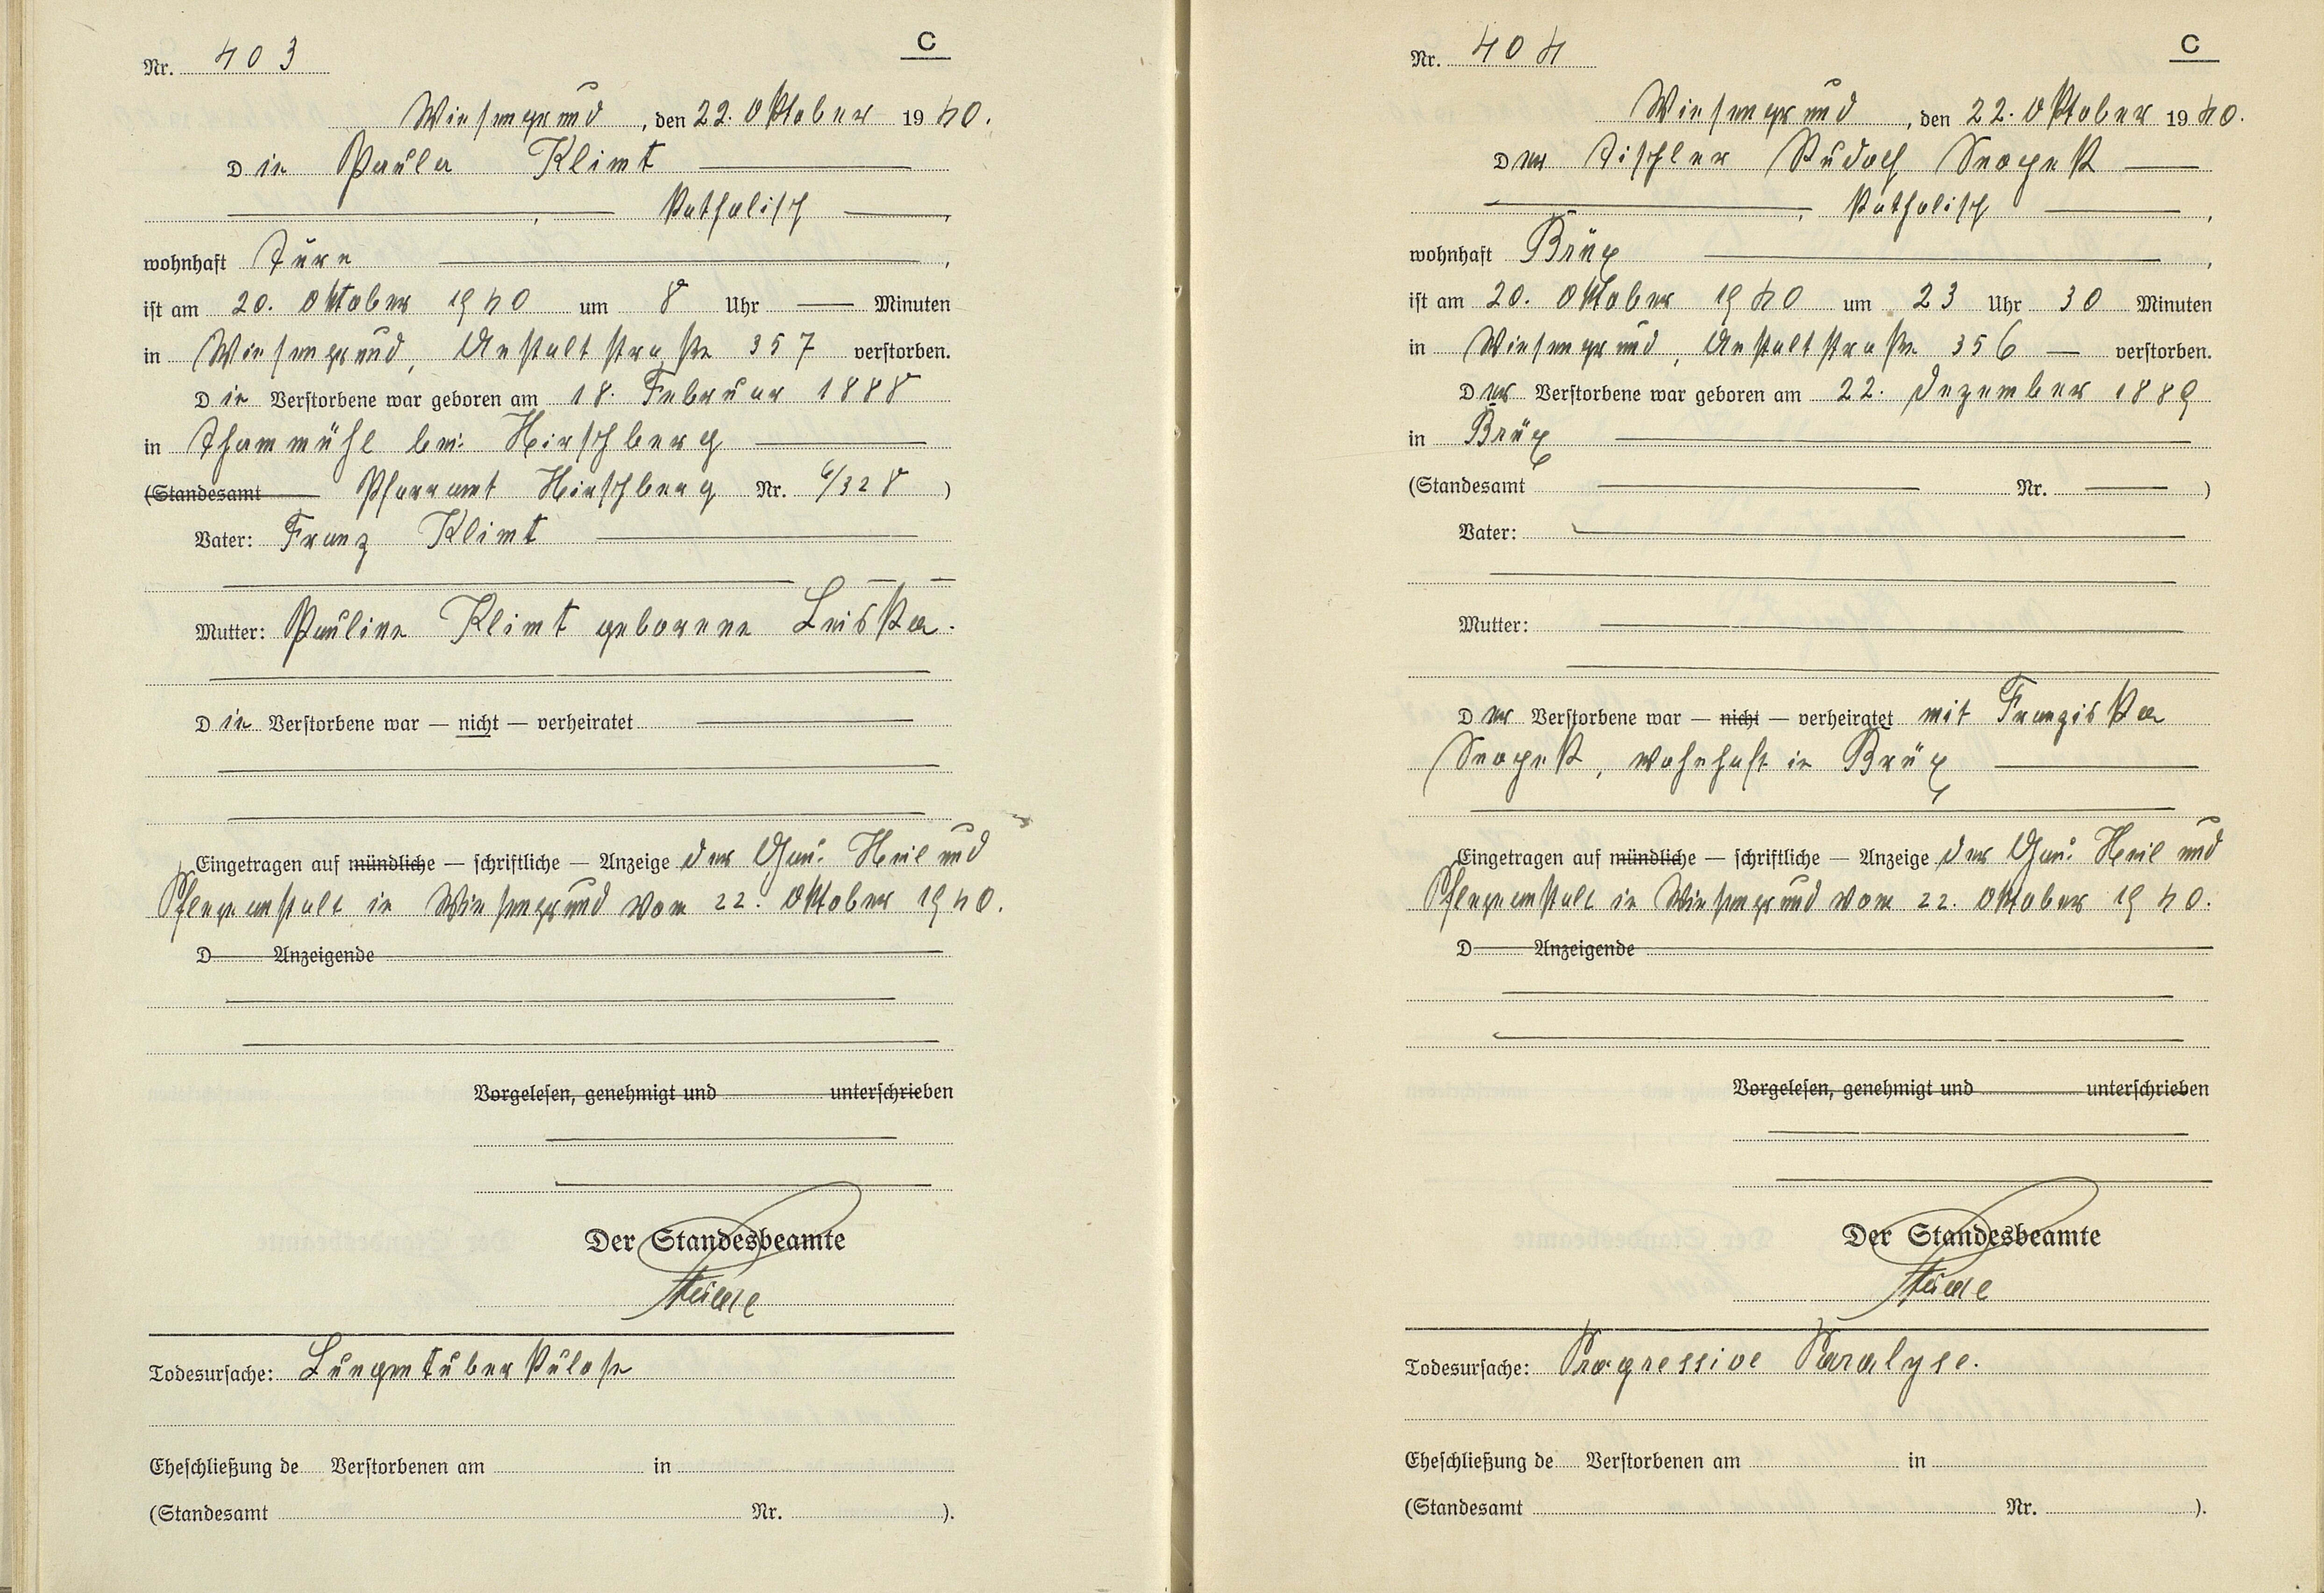 C
Nr. 403
Wiesengrund, den 22. Oktober 1940.
Die Paula Klimt
, katholisch,
wohnhaft Turn,
ist am 20. Oktober 1940 um 8 Uhr Minuten
in Wiesengrund, Anstaltstraße 357 verstorben.
Die Verstorbene war geboren am 18. Februar 1888
in Thammühl bei Hirschberg
(Standesamt Pfarramt Hirschberg Nr. 6/328)
Vater: Franz Klimt
Mutter: Pauline Klimt geborene Leiska.
Die Verstorbene war — nicht — verheiratet
Eingetragen auf mündliche — schriftliche — Anzeige der Gau. Heil und
Pflegeanstalt in Wiesengrund vom 22. Oktober 1940.
D Anzeigende
Vorgelesen, genehmigt und unterschrieben
Der Standesbeamte
Todesursache: Lungentuberkulose
Eheschließung de Verstorbenen am in
(Standesamt Nr. ).
C
Nr. 404
Wiesengrund, den 22. Oktober 1940.
Der Tischler Rudolf
, katholisch,
wohnhaft Brüx,
ist am 20. Oktober 1940 um 23 Uhr 30 Minuten
in Wiesengrund, Anstaltstraße 356 — verstorben.
Der Verstorbene war geboren am 22. Dezember 1889
in Brüx
(Standesamt Nr. )
Vater:
Mutter:
Der Verstorbene war — nicht — verheiratet mit Franziska
, wohnhaft in Brüx
Eingetragen auf mündliche — schriftliche — Anzeige der Gau. Heil und
Pflegeanstalt in Wiesengrund vom 22. Oktober 1940.
D Anzeigende
Vorgelesen, genehmigt und unterschrieben
Der Standesbeamte
Todesursache: Progressive Paralyse.
Eheschließung de Verstorbenen am in
(Standesamt Nr. ).